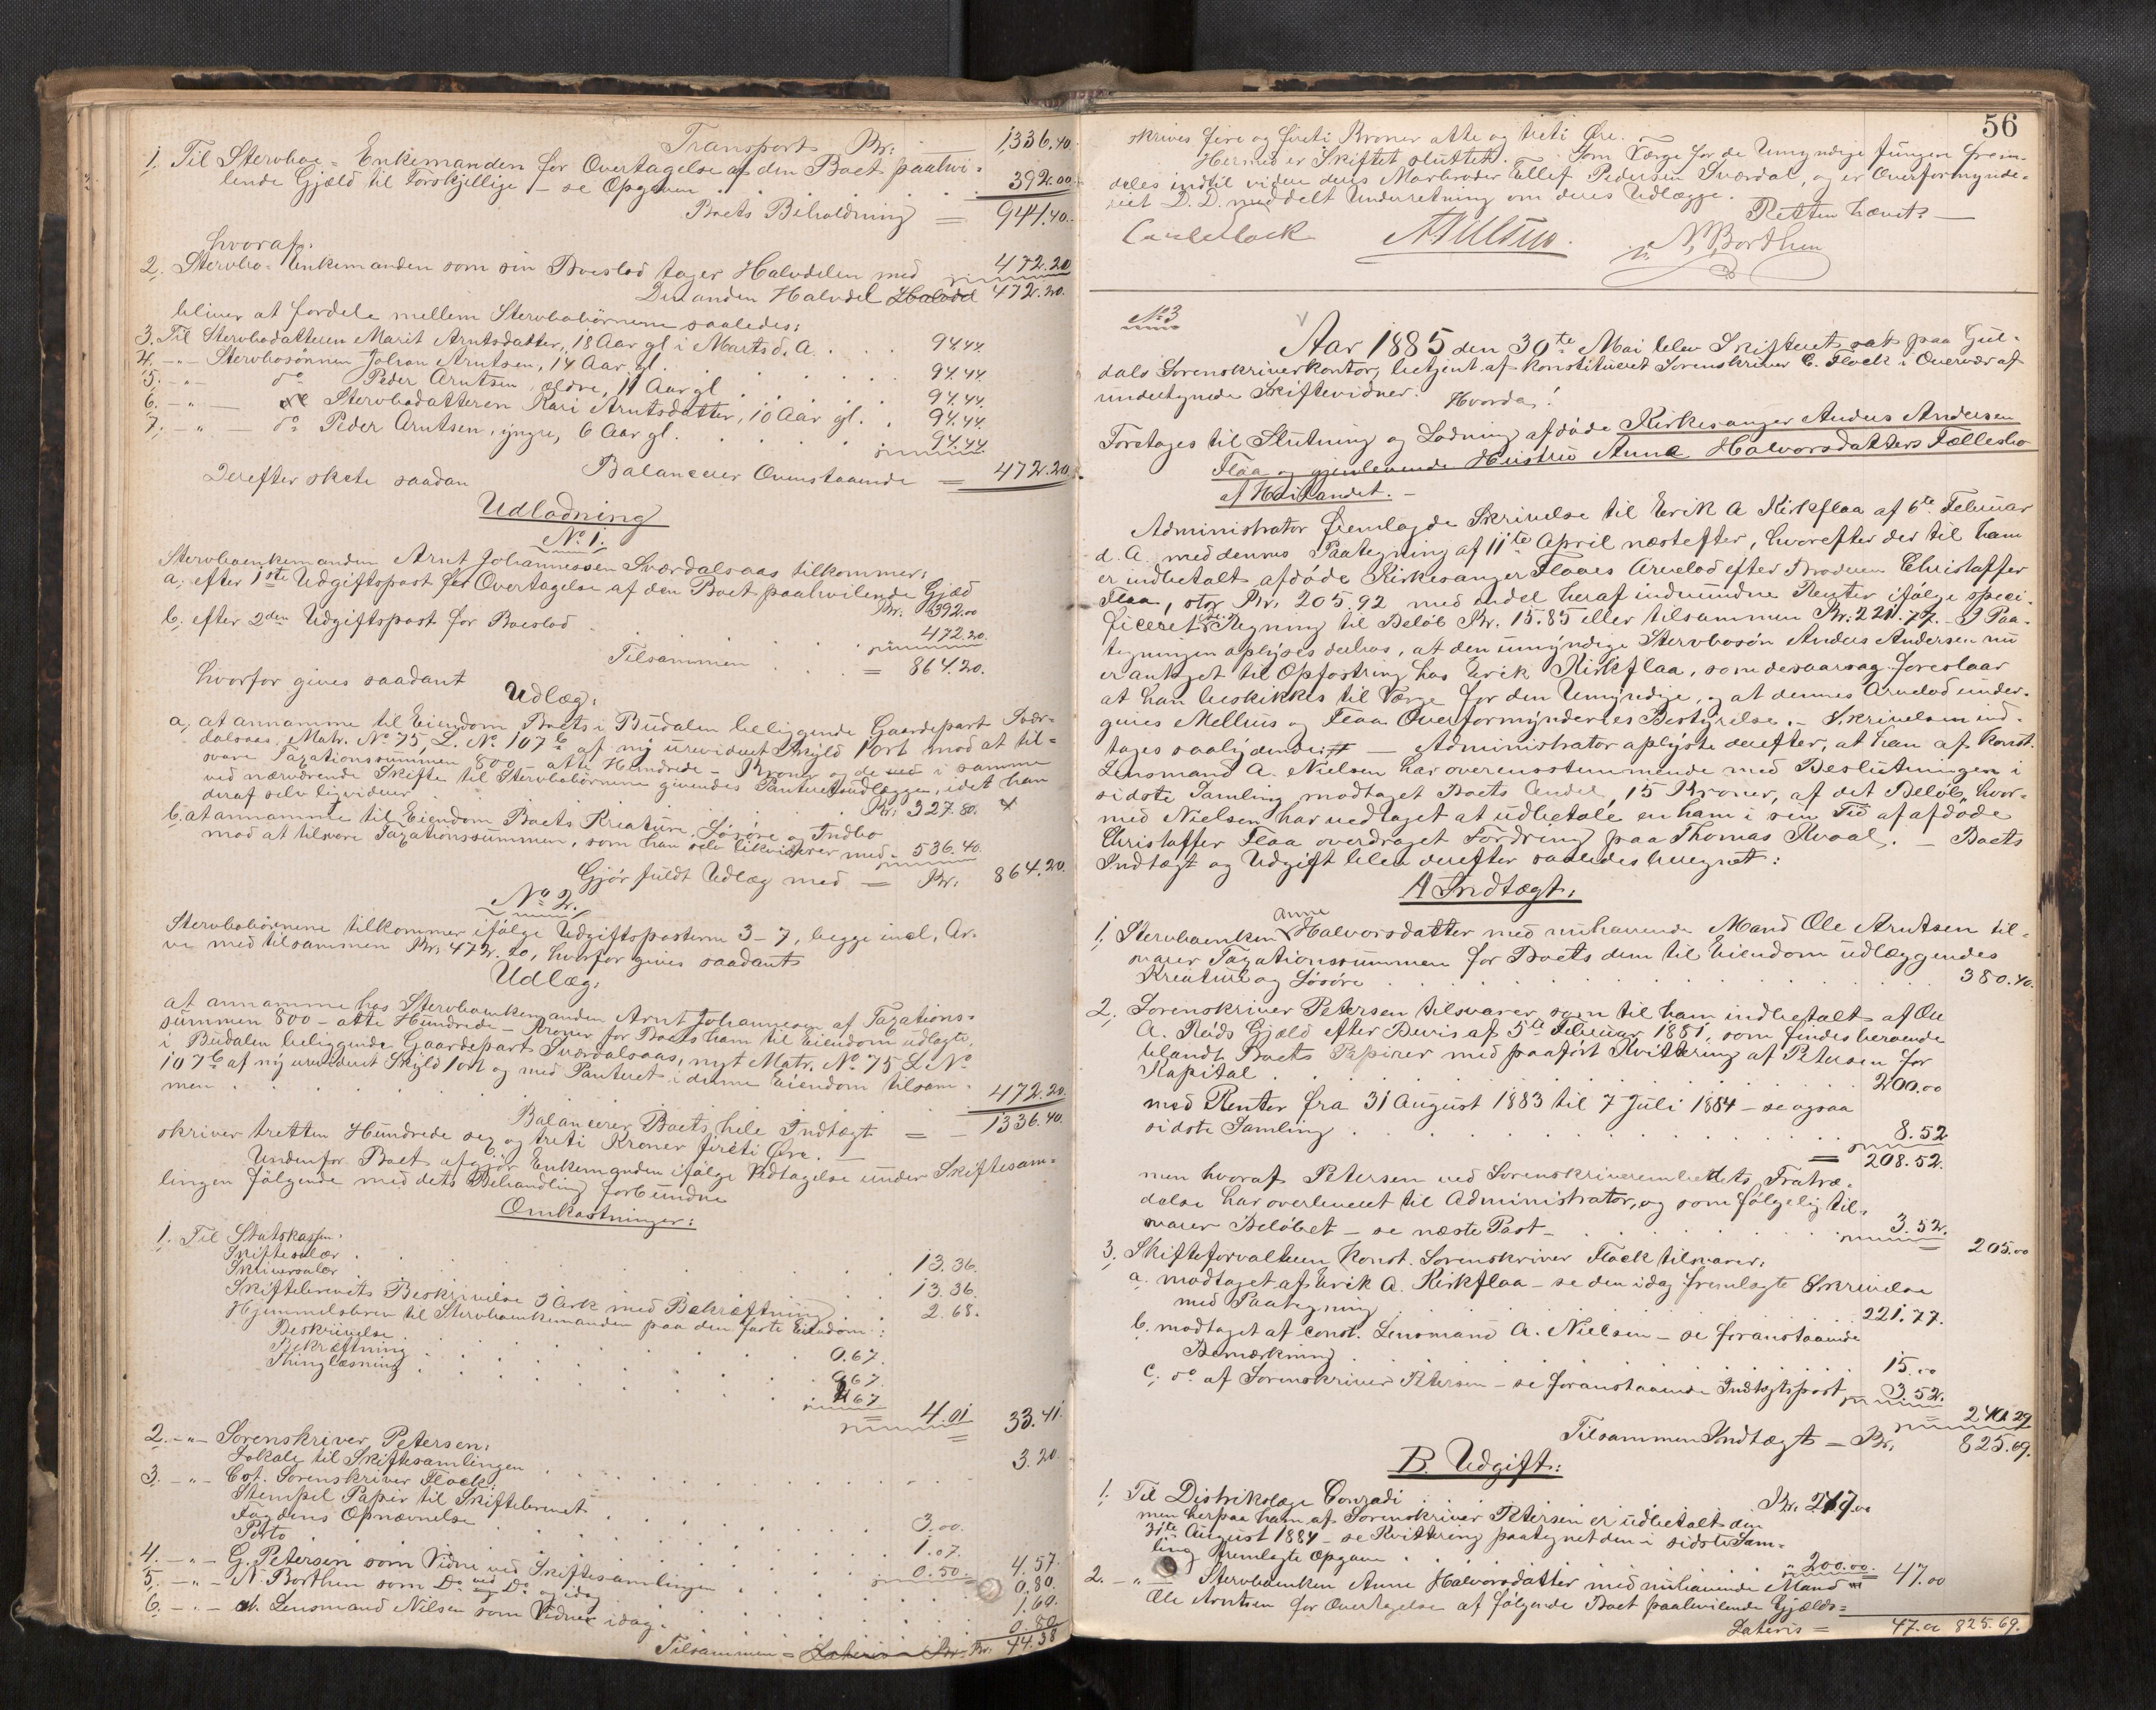 Transport Kr. 1336.40
1. Til Stervboe-Enkemanden for Overtagelse af den Boet paahvi-
lende Gjæld til Forskjellige – se Opgaven . . 392.00
Boets Beholdning = 944.40.
hvoraf:
2. Stervbo-Enkemanden som sin Boeslod tager Halvdelen med 472.20
Den anden Halvdel Halvdel 472.20.
bliver at fordele mellem Stervbobörnene saaledes:
3. Til Stervbodatteren Marit Arntsdatter, 18 Aar gl i Marts d. A. . . . 94.44.
4. –"– Stervbosönnen Johan Arntsen, 14 Aar gl. . . . 94.44.
5. –"– do Peder Arntsen, ældre, 11 Aar gl . . . 94.44.
6. –"– Stervbodatteren Kari Arntsdatter, 10 Aar gl. . 94.44.
7. –"– do Peder Arntsen, yngre, 6 Aar gl. . . . 94.44
Balancerer Ovenstaaende = 472.20
Derefter skete saadan
Udlodning
No 1.
Stervboenkemanden Arnt Johannessen Sværdalsaas tilkommer:
a, efter 1ste Udgiftspost for Overtagelse af den Boet paahvilende Gjæd
Kr. 392.00
b, efter 2den Udgiftspost for Boeslod 472.20.
Tilsammen . . = 864.20.
hvorfor gives saadant
Udlæg:
a, at annamme til Eiendom Boets i Budalen beliggende Gaardepart Sværd-
dalsaas, Matr. No 75, L. No 107b af ny urevideret Skyld 1 Ort mod at til-
svare Taxationssummen 800 – atte Hundrede – Kroner og de ved i samme
ved nærværende Skifte til Stervbobörnene givendes Panteretsudlæggen, idet han
deraf selv ligviderer . . . Kr. 327.80.
b, at annamme til Eiendom Boets Kreature, Lösöre og Indbo
mod at tilsvare Taxationssummen, som han selv likviderer med 536.40.
Gjör fuldt Udlæg med = Kr. 864.20.
No 2.
Stervbobörnene tilkommer ifölge Udgiftsposterne 3–7, begge incl, Ar-
ve med tilsammen Kr. 472.20, hvorfor gives saadant
Udlæg:
at annamme hos Stervboenkemanden Arnt Johannesen af Taxations-
summen 800 – atte Hundrede – Kroner for Boets ham til Eiendom udlagte,
i Budalen beliggende Gaardepart Sværdalsaas, nyt Matr. No 75 L No
107b af ny urevideret Skyld 1 Ort og med Panteret i denne Eiendom tilsam-
men . . . 472.20.
Balancerer Boets hele Indtægt = – 1336.40.
skriver tretten Hundrede sex og treti Kroner fireti Öre. –
Undenfor Boet afgjör Enkemanden ifölge Vedtagelse under Skiftesam-
lingen fölgende med dets Behandling forbundne
Omkostninger:
1. Til Statskassen:
Skiftesalær . . . 13.36.
Skriversalær . . . 13.36.
Skiftebrevets Beskrivelse 3 Ark med Bekræftning . . 2.68.
Hjemmelsbrev til Stervboenkemanden paa den faste Eiendom:
Beskrivelse . . . 0.67.
Bekræftning . . . 0.67
Thinglæsning . . . 2.67
4.01 33.41.
2. –"– Sorenskriver Petersen:
Lokale til Skiftesamlingen . . . 3.20
3. –"– Cst. Sorenskriver Flock:
Stempel Papir til Skiftebrevet . . . 3.00.
Fogdens Opnævnelse . . . 1.07.
Porto . . . 0.50. 4.57.
4. –"– G. Petersen som Vidne ved Skiftesamlingen . . . 0.80.
5. –"– N. Borthen som Do ved Do og idag . . . 1.60.
6. –"– Lensmand Nilsen som Vidne idag. . . . 0.80
Tilsammen = Lateris Kr. Kr. 44.38
56
skrives fire og fireti Kroner atte og treti Öre.
Hermed er Skiftet sluttet. Som Værge for de Umyndige fungerer frem-
deles indtil videre deres Morbroder Ellef Pedersen Sværdal, og er Overformynde-
riet D. D. meddelt Underretning om deres Udlægge. –
Retten hævet. –
Carl Flock A Nielsen. N. Borthen
No 3
Aar 1885 den 30te Mai blev Skifteret sat paa Gul-
dals Sorenskriverkontor, betjent af konstitueret Sorenskriver C. Flock i Overvær af
undertegnede Skiftevidner. Hvorda!
Foretoges til Slutning og Lodning afdöde Kirkesanger Anders Andersen
Flaa og gjenlevende Hustru Anna Halvorsdatters Fællesbo
af Hölandet. –
Administrator fremlagde Skrivelse til Erik A Kirkflaa af 6te Februar
d. A. med dennes Paategning af 11te April næstefter, hvorefter der til ham
er indbetalt afdöde Kirkesanger Flaaes Arvelod efter Broderen Christoffer
Flaa, stor Kr. 205.92 med endel heraf indvundne Renter ifölge speci-
ficeret Regning til Belöb Kr. 15.85 eller tilsammen Kr. 221.77. – I Paa-
tegningen oplyses derhos, at den umyndige Stervbosön Anders Andersen nu
er antaget til Opfostring hos Erik Kirkflaa, som desaarsag foreslaar
at han beskikkes til Værge for den Umyndige, og at dennes Arvelod under-
gives Melhus og Flaa Overformynderies Bestyrelse. – Skrivelsen ind-
tages saalydende: – Administrator oplyste derefter, at han af konst.
Lensmand A. Nielsen har overensstemmende med Beslutningen i
sidste Samling modtaget Boets Andel, 15 Kroner, af det Belöb, hvor-
med Nielsen har vedtaget at udbetale en ham i sin Tid af afdöde
Christoffer Flaa overdraget Fordring paa Thomas Kvaal. – Boets
Indtægt og Udgift blev derefter saaledes beregnet:
A Indtægt:
1, Stervboenken Anne Halvorsdatter med nuhavende Mand Ole Arntsen til-
svarer Taxationssummen for Boets dem til Eiendom udlæggendes
Kreature og Lösöre . . . 380.40.
2, Sorenskriver Petersen tilsvarer, som til ham indbetalt af Ole
A. Röds Gjæld efter Bevis af 5te Februar 1881, som findes beroende
blandt Boets Papirer med paafört Kvittering af Petersen for
Kapital . . . 200.00
med Renter fra 31 August 1883 til 7 Juli 1884 – se ogsaa
sidste Samling . . . 8.52
= 208.52.
men hvoraf Petersen ved Sorenskriverembedets Fratræ-
delse har overleveret til Administrator, og som fölgelig til-
svarer Belöbet – se næste Post – . . . 3.52. 205.00
3. Skifteforvalteren Konst. Sorenskriver Flock tilsvarer:
a. modtaget af Erik A. Kirkflaa – se den idag fremlagte Skrivelse
med Paategning . . . 221.77.
b. modtaget af const. Lensmand A. Nielsen – se foranstaaende
Bemærkning . . . 15.00
c, do af Sorenskriver Petersen – se foranstaaende Indtægtspost 3.52. 240.29
Tilsammen Indtægt – Kr. 825.69.
B. Udgift:
1. Til Distriktslæge Conradi . . . Kr. 247.00
men herpaa ham af Sorenskriver Petersen er udbetalt den
August 1884 – se Kvittering paategnet den i sidste Sam-
ling fremlagte Opgave . . . " 200.00. = 47.00
2. –"– Stervboenken Anne Halvorsdatter med nuhavende Mand
Ole Arntsen for Overtagelse af fölgende Boet paahvilende Gjælds-
Lateris = 47.00 825.69.